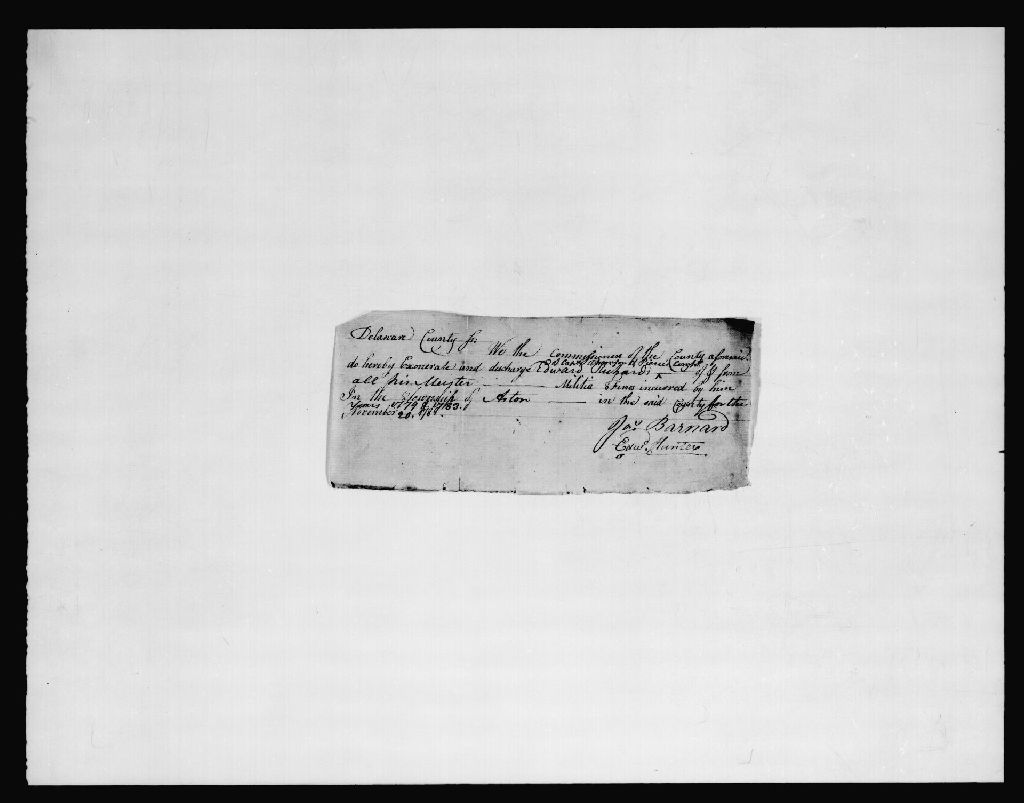 Delaware County ss.
We the Commissioners of the County aforesaid
do hereby Exonerate and discharge Edward Richards of & from
all fines Militia being incurred by him
In the Township of Aston in the said County for the
Years 1783.
November 20.
Jas. Barnard
Edwd. Hunter